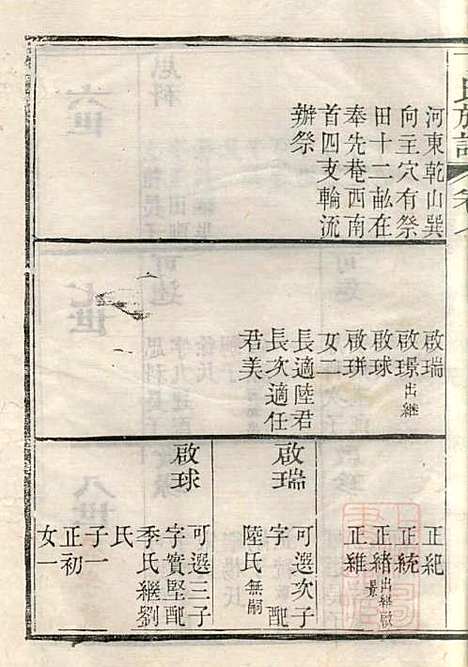 氏族譜
河東乾山巽
向王穴有祭
田十二畝在
奉先菴西南
首四支輪流
辦祭
啟瑞
啟璟出繼
啟球
啟琲
女二
長適陸君
長次適任
君美
正紀
正統
正緒出繼啟璟
正維
啟瑞
可選次子
字 配
陸氏無嗣
啟球
可選三子
字寶堅配
季氏繼劉
氏
子一
正初
女一